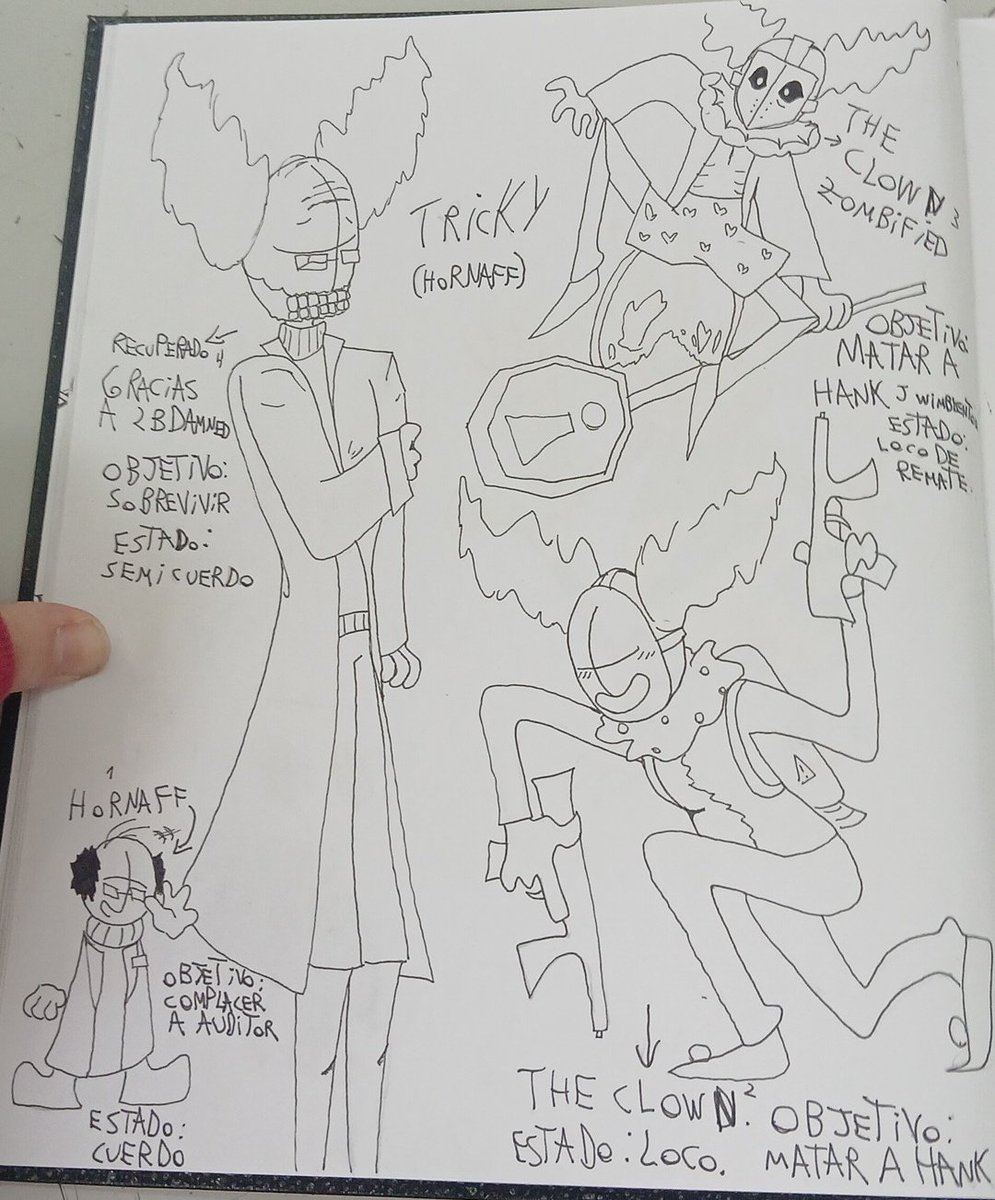 TRICKY
(HORNAFF)
THE
CLOWN 3
ZOMBIFIED
OBJETIVO:
MATAR A
HANK J WIMBLETON
ESTADO:
LOCO DE
REMATE.
RECUPERADO 4
GRACIAS
A 2BDAMNED
OBJETIVO:
SOBREVIVIR
ESTADO:
SEMICUERDO
1
HORNAFF
OBJETIVO:
COMPLACER
A AUDITOR
ESTADO:
CUERDO
THE CLOWN 2.
ESTADO: LOCO.
OBJETIVO:
MATAR A HANK